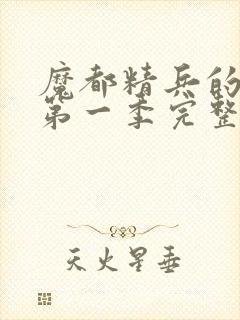 魔都精兵的
第一季完整
天火星垂